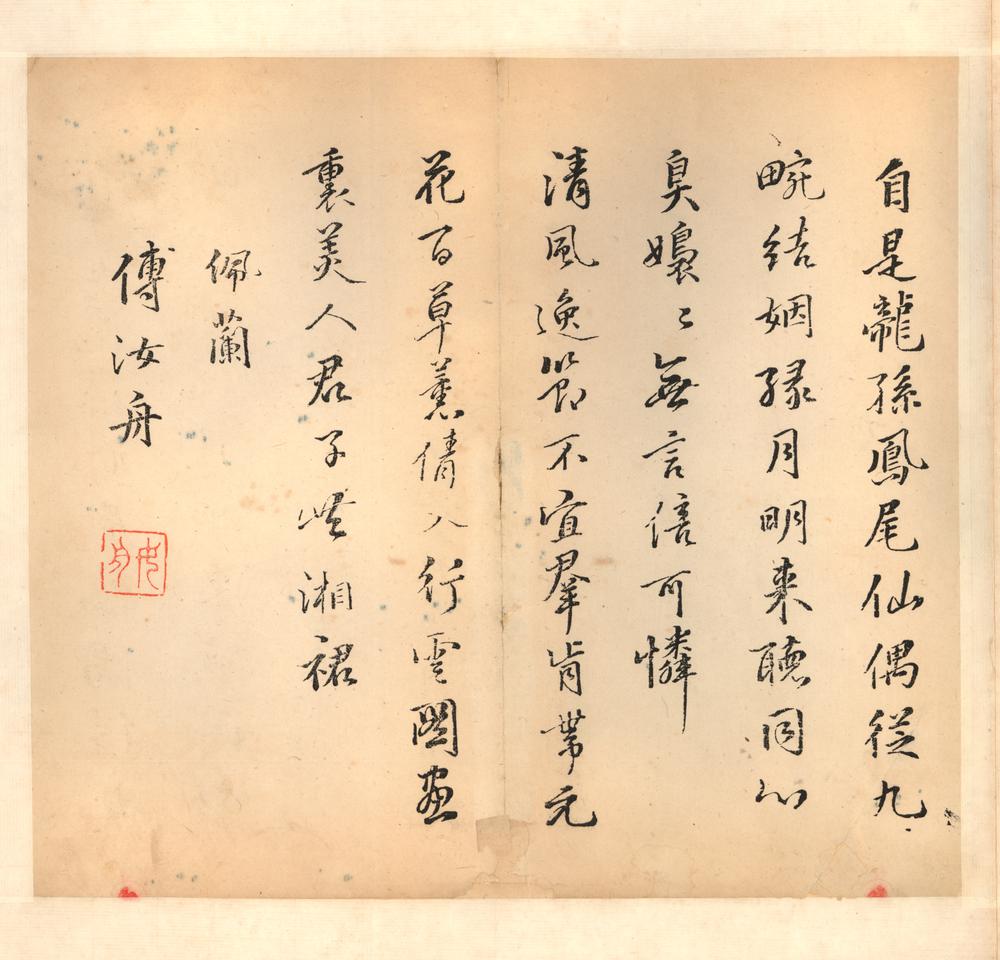 自是龍孫鳳尾仙偶從九
畹結姻緣月明來聽同心
臭嬝〻無言倍可憐
清風逸節不宜羣肯帶元
花百草薰倩入行雲圖畫
裏美人君子幾湘裙
佩蘭
傅汝舟